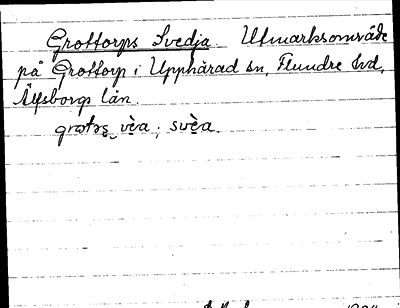 Grottorps Svedja. Utmarksområde
på Grottorp i Upphärad sn, Flundre hd,
Älfsborgs län.
grɷtɷrs vèa ; svèa.